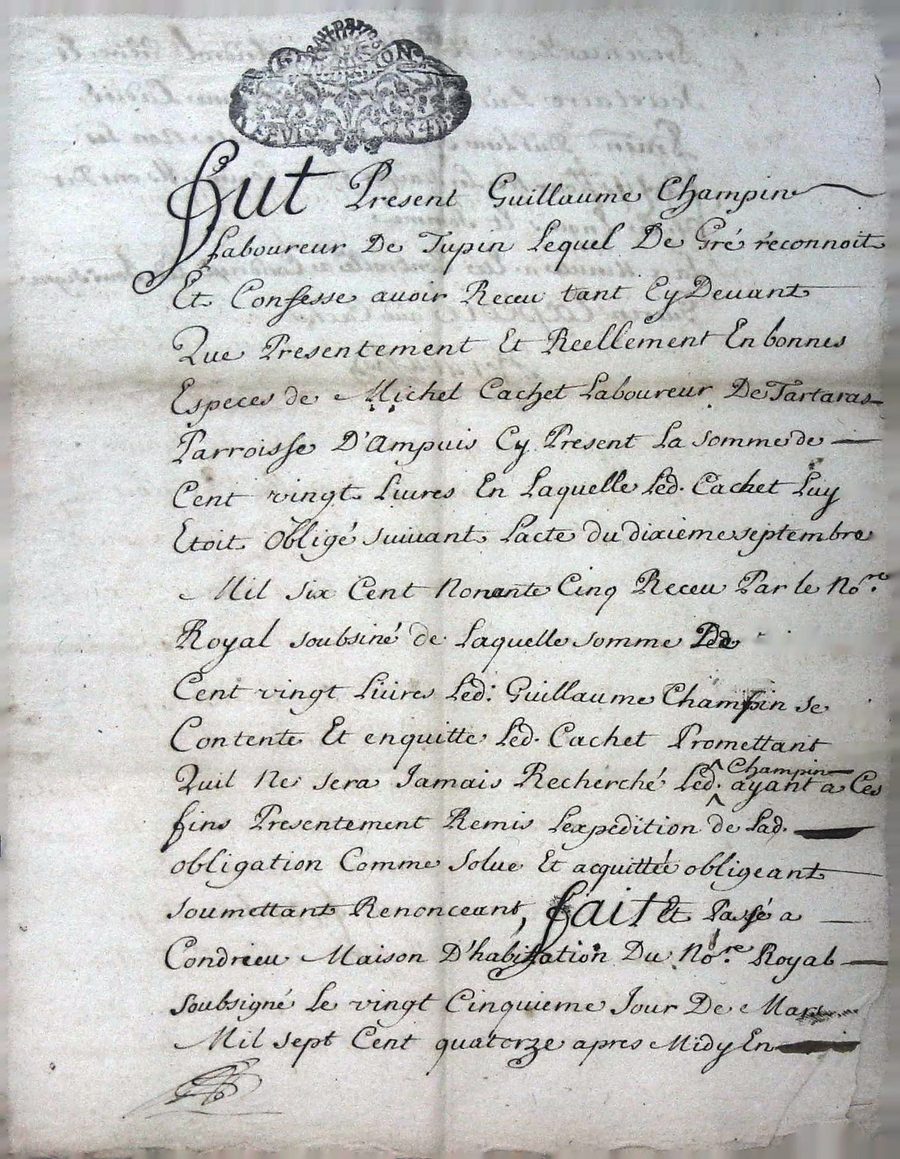 fut Present Guillaume Champin
Laboureur De Tupin Lequel De Gré réconnoit
Et Confesse auoir Receu tant Cy Deuant
Que Presentement Et Réellement En bonnes
Especes de Michel Cachet Laboureur De Tartaras
Parroisse D'Ampuis Cy Present La somme de
Cent vingt Liures En Laquelle Led. Cachet Luy
Etoit Obligé suiuant Lacte du dixième septembre
Mil six Cent Nonante Cinq Receu Par le No.re
Royal soubsiné de Laquelle somme De
Cent vingt Liures Led. Guillaume Champin se
Contente Et enquitte Led. Cachet Promettant
Quil Ne sera Jamais Recherché Led. Champin ayant a Ces
fins Presentement Remis Lexpédition de Lad.
obligation Comme solue Et acquittée obligeant
soumettant Renonceant, fait Et Passé a
Condrieu Maison D'habitation Du No.re Royal
soubsigné Le vingt Cinquieme Jour De Mars
Mil sept Cent quatorze apres Midy En